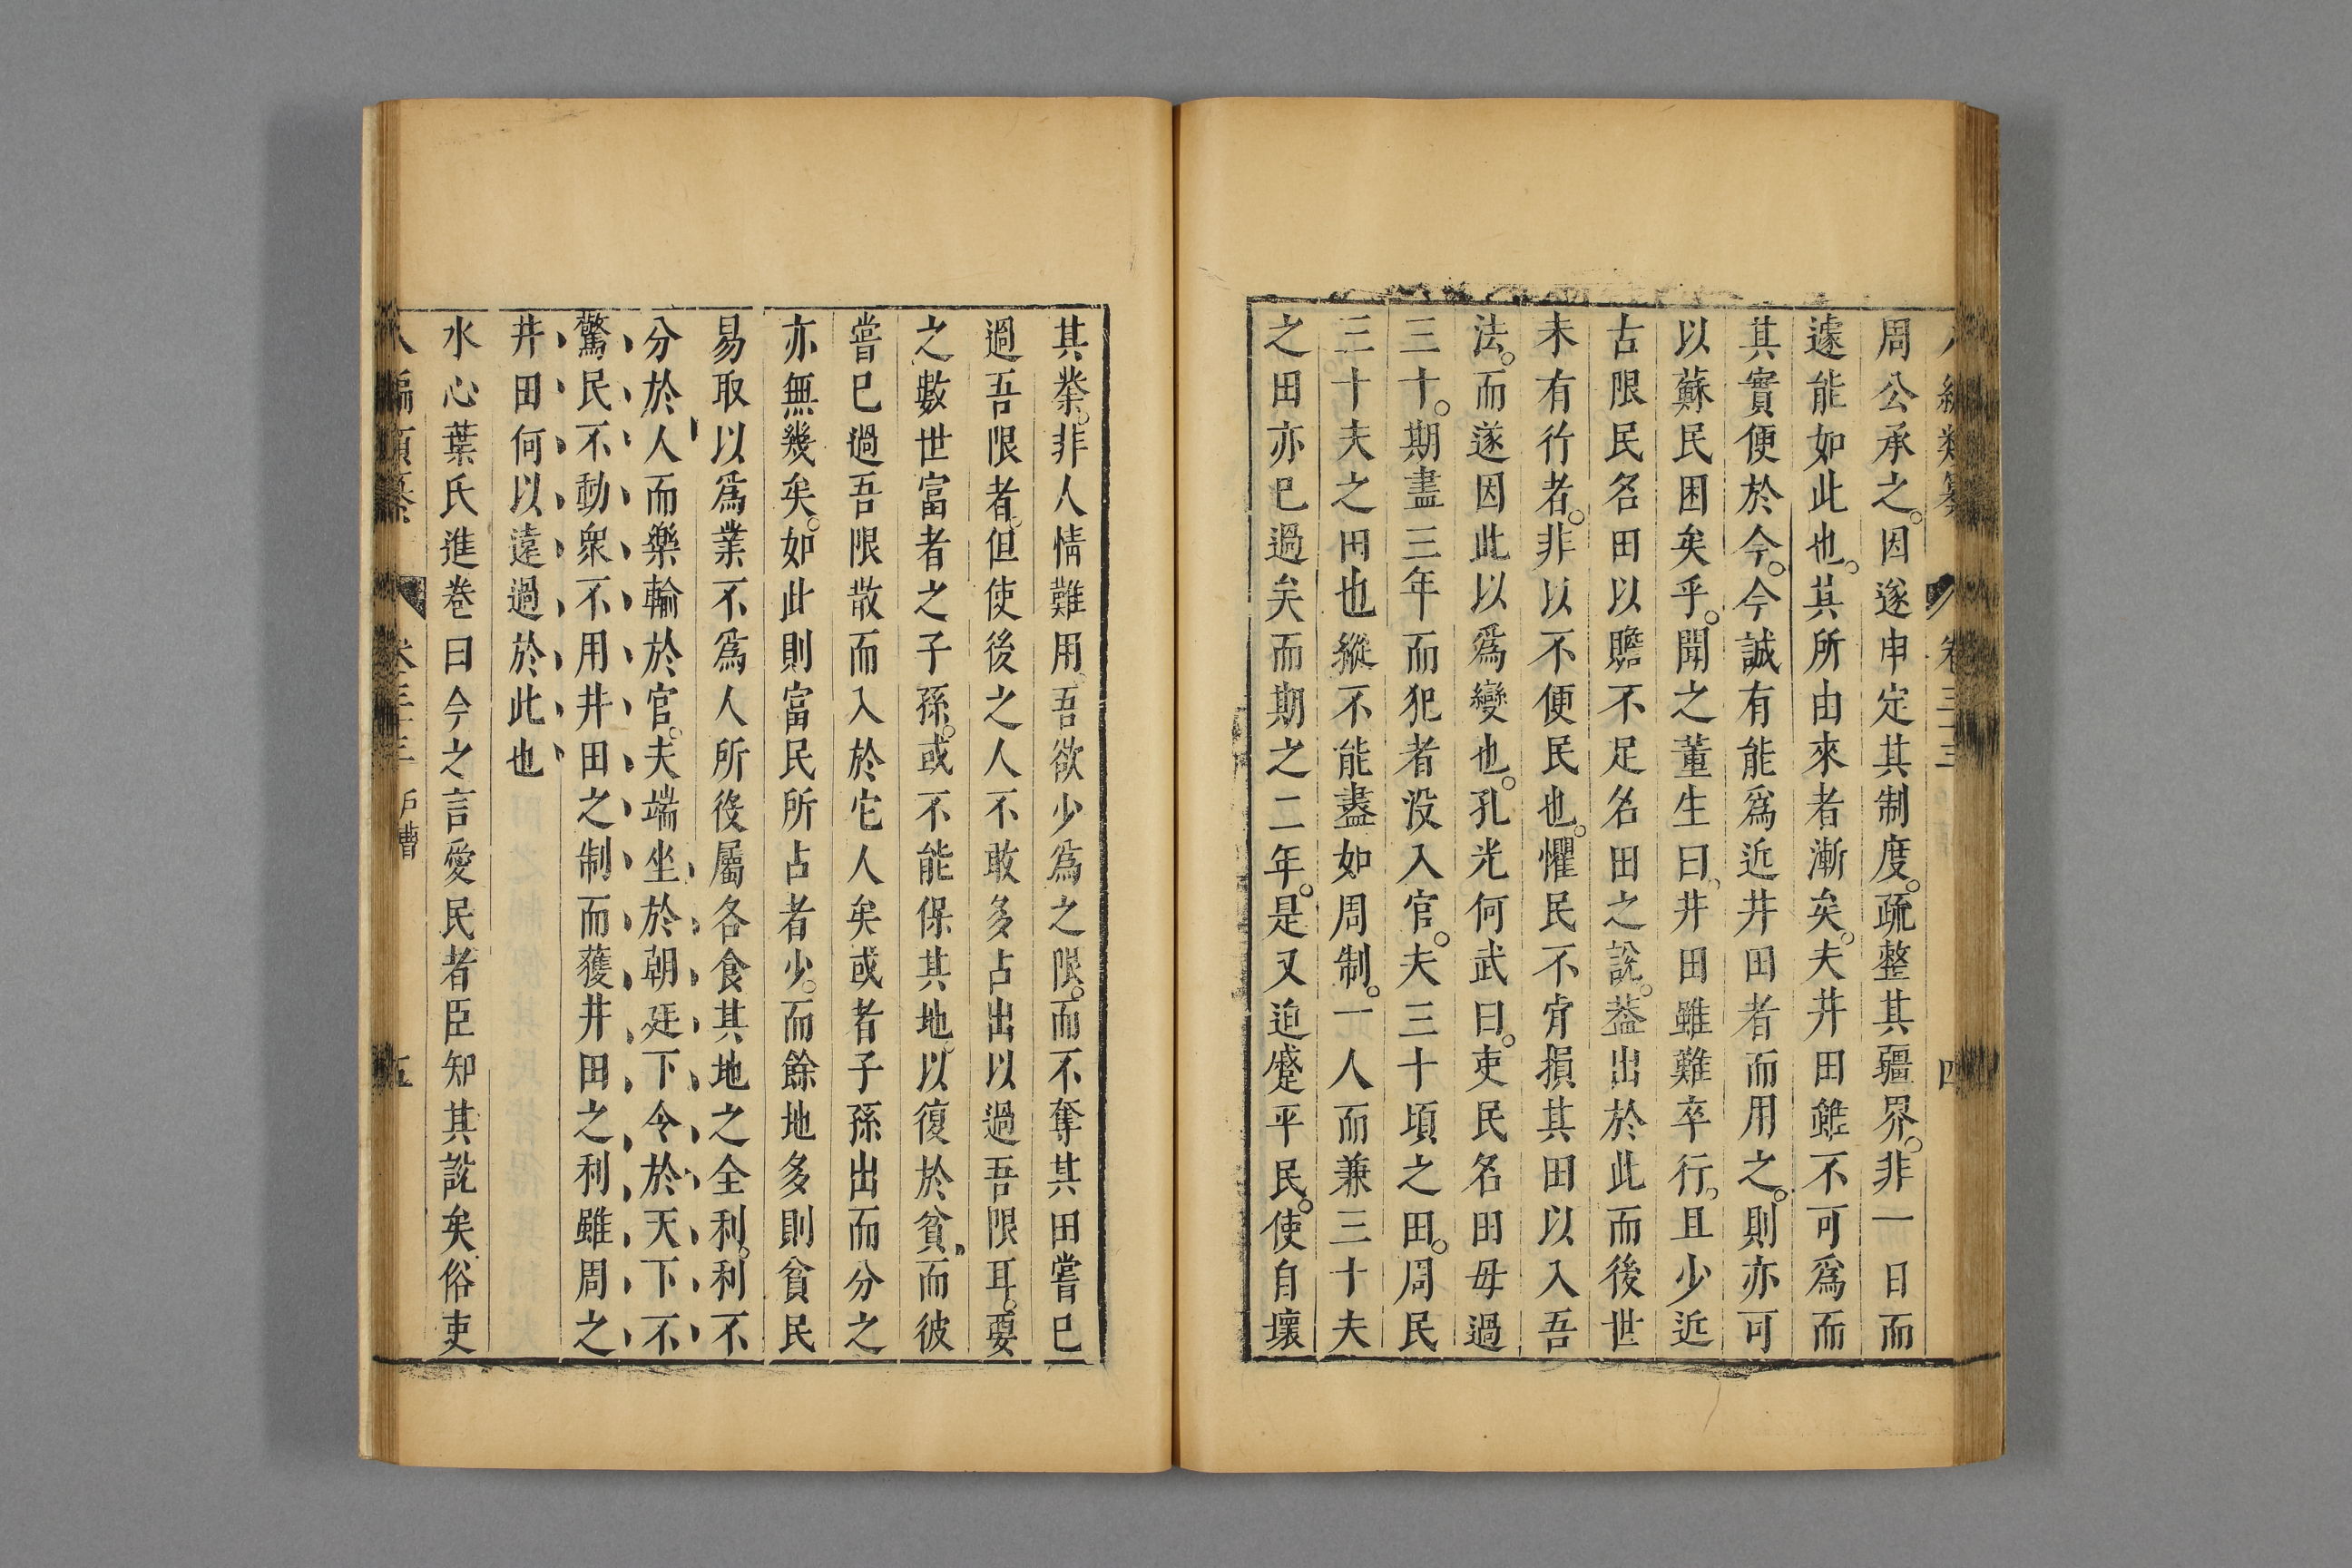 八編類纂 卷三十三 四
周公承之。因遂申定其制度。疏整其疆界。非一日而
遽能如此也。其所由來者漸矣。夫井田雖不可爲而
其實便於今。今誠有能爲近井田者而用之。則亦可
以蘇民困矣乎。聞之董生曰。井田雖難卒行。且少近
古限民名田以贍不足名田之說。葢出於此而後世
未有行者。非以不便民也。懼民不肯損其田以入吾
法。而遂因此以爲變也。孔光何武曰。吏民名田毋過
三十。期盡三年而犯者沒入官。夫三十頃之田。周民
三十夫之田也縱不能盡如周制。一人而兼三十夫
之田亦已過矣而期之二年。是又迫蹙平民。使自壞
其業。非人情難用。吾欲少爲之限。而不奪其田嘗已
過吾限者。但使後之人不敢多占出以過吾限耳。要
之數世富者之子孫。或不能保其地。以復於貧。而彼
嘗已過吾限散而入於它人矣或者子孫出而分之
亦無幾矣。如此則富民所占者少。而餘地多則貧民
易取以爲業不爲人所役屬各食其地之全利。利不
分於人而樂輸於官。夫端坐於朝廷下令於天下不
驚民不動衆不用井田之制而獲井田之利雖周之
井田何以遠過於此也
水心葉氏進卷曰今之言愛民者臣知其說矣俗吏
八編類纂 卷三十三 戶曹 五